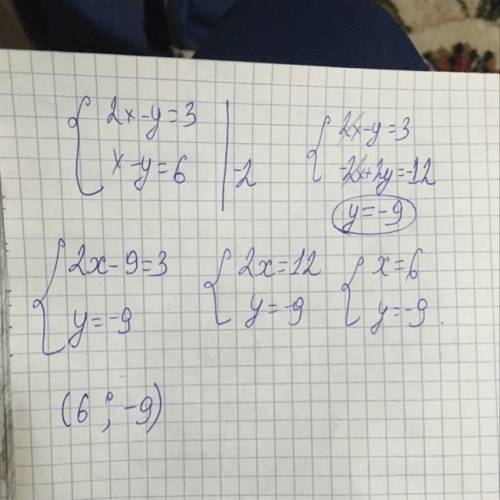 2x-y=3
x-y=6 | -2
2x-y=3
-2x+2y=-12
y=-9
2x-9=3
y=-9
2x=12
y=-9
x=6
y=-9.
(6 ; -9)